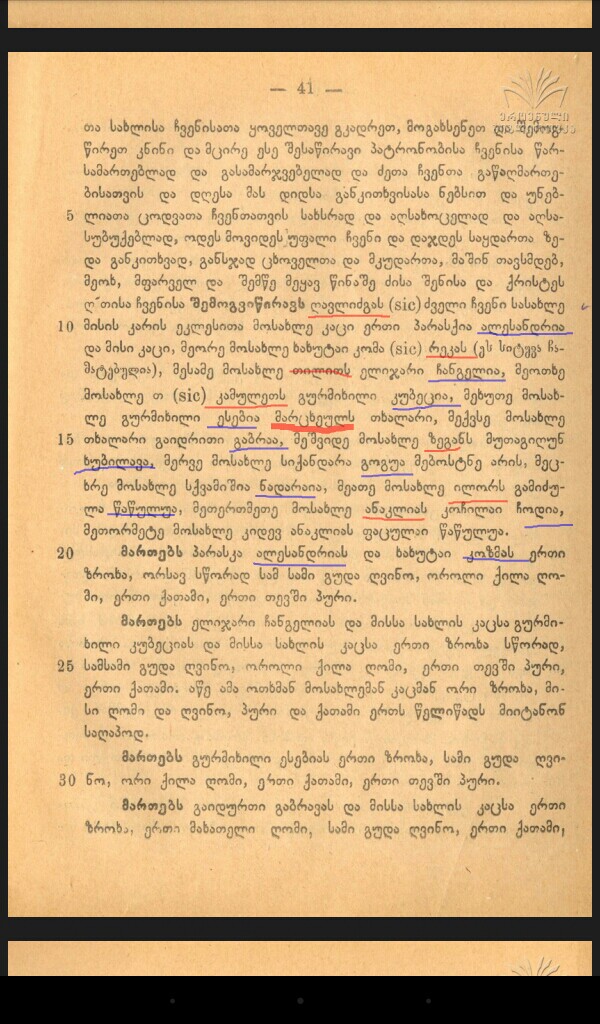 — 41 —
ეროვნული
თა სახლისა ჩვენისათა ყოველთავე გკადრეთ, მოგახსენეთ და შემოგ-
წირეთ კნინი და მცირე ესე შესაწირავი პატრონობისა ჩვენისა წარ-
სამართებლად და გასამარჯვებელად და ძეთა ჩვენთა გაწაღმართე-
ბისათვის და დღესა მას დიდსა განკითხვისასა ნებსით და უნებ-
5 ლიათა ცოდვათა ჩვენთათვის სახსრად და აღსახოცელად და აღსა-
სუბუქებლად, ოდეს მოვიდეს უფალი ჩვენი და დაჯდეს საყდართა ზე-
და განკითხვად, განსჯად ცხოველთა და მკუდართა, მაშინ თავსმდებ,
მეოხ, მფარველ და შემწე მეყავ წინაშე ძისა შენისა და ქრისტეს
ღ˜თისა ჩვენისა შემოგვიწირავს ღავლიძგას (sic) ძველი ჩვენი სასახლე
10 მისის კარის ეკლესითა მოსახლე კაცი ერთი პარასქია ალესანდრია
და მისი კაცი, მეორე მოსახლე ხახუტაი კომა (sic) რეკას (ეს სიტყვა ჩა-
მატებულია), მესამე მოსახლე თილითს ელიჯარი ჩანგელია, მეოთხე
მოსახლე თ (sic) კამულეთს გურმიხილი კუბეცია, მეხუთე მოსახ-
ლე გურმიხილი ესებია მარცხეულს თხალარი, მექვსე მოსახლე
15 თხალარი გაიდრითი გაბრაა, მეშვიდე მოსახლე ზეგანს მუთაგიღუნ
ხუბილავა, მერვე მოსახლე სიქანდარა გოგუა მებოსტნე არის, მეც-
ხრე მოსახლე სქვამიშია ნადარაია, მეათე მოსახლე ილორს გამიძუ-
ლა წაწულუა, მეთერთმეთე მოსახლე ანაკლიას კოჩილაი ჩოდია,
მეთორმეტე მოსახლე კიდევ ანაკლიას ფაცულაი წაწულუა.
20 მართებს პარასკა ალესანდრიას და ხახუტაი კოზმას ერთი
ზროხა, ორსავ სწორად სამ სამი გუდა ღვინო, ოროლი ქილა ღო-
მი, ერთი ქათამი, ერთი თევში პური.
მართებს ელიჯარი ჩანგელიას და მისსა სახლის კაცსა გურმი-
ხილი კუბეციას და მისსა სახლის კაცსა ერთი ზროხა სწორად,
25 სამსამი გუდა ღვინო, ოროლი ქილა ღომი, ერთი თევში პური,
ერთი ქათამი. აწე ამა ოთხმან მოსახლემან კაცმან ორი ზროხა, მი-
სი ღომი და ღვინო, პური და ქათამი ერთს წელიწადს მიიტანონ
საღაპოდ.
მართებს გურმიხილი ესებიას ერთი ზროხა, სამი გუდა ღვი-
30 ნო, ორი ქილა ღომი, ერთი ქათამი, ერთი თევში პური.
მართებს გაიდურთი გაბრავას და მისსა სახლის კაცსა ერთი
ზროხა, ერთი მახათელი ღომი, სამი გუდა ღვინო, ერთი ქათამი,